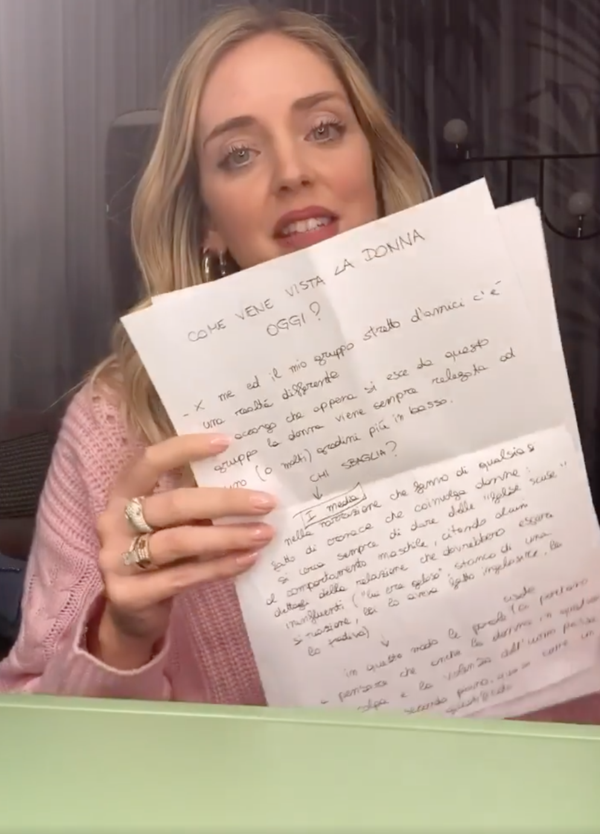 COME VENE VISTA LA DONNA
OGGI?
- X me ed il mio gruppo stretto d'amici c'è
una realtà differente
accorgo che appena si esce da questo
gruppo la donna viene sempre relegata ad
uno (o molti) gradini più in basso.
CHI SBAGLIA?
I media
nella narrazione che fanno di qualsiasi
fatto di cronaca che coinvolga donne:
si cerca sempre di dare delle "false scuse"
al comportamento maschile, citando alcuni
dettagli della relazione che dovrebbero essere
ininfluenti ("lui era geloso" stanco di una
situazione, lei lo aveva fatto ingelosire, lo
tradiva)
in questo modo le persone
pensare che anche la donna in qualche
colpa e la violenza dell'uomo
secondo piano, come un